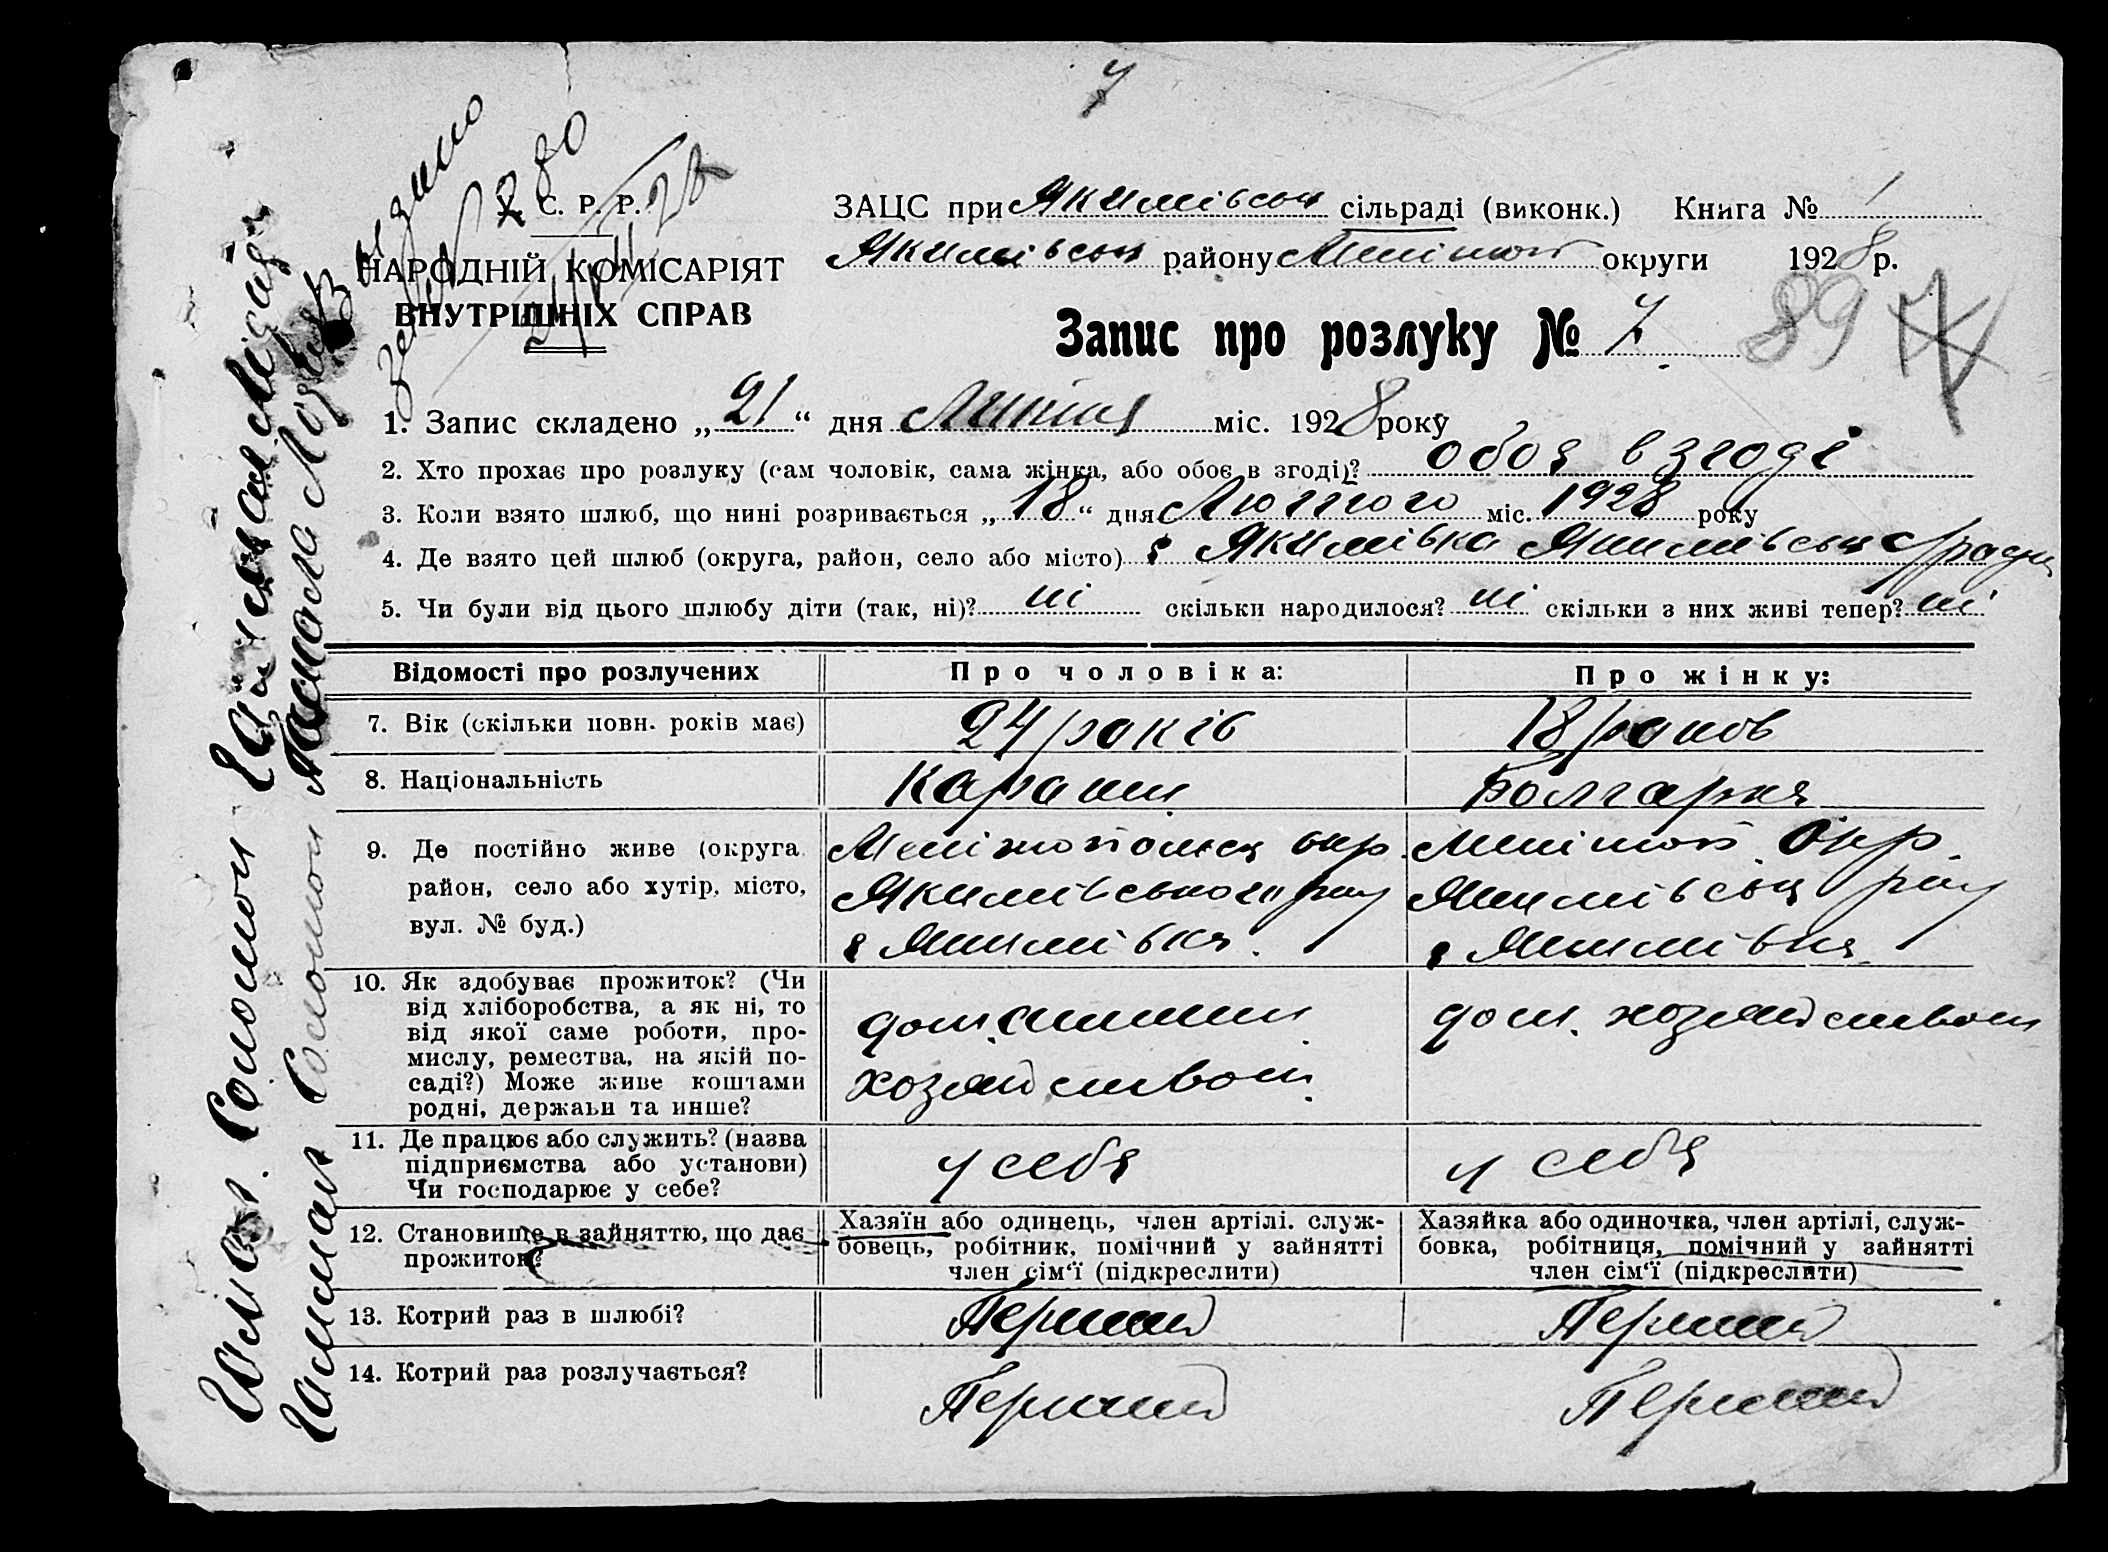 7
У. С. Р. Р.
НАРОДНІЙ КОМІСАРІЯТ
ВНУТРІШНІХ СПРАВ
ЗАЦС при Якимівськ сільраді (виконк.) Книга № 1
Якимівськ району Меліттоп округи 1928 р.
Запис про розлуку № 7.
89
1. Запис складено „21“ дня Липня міс. 1928 року
2. Хто прохає про розлуку (сам чоловік, сама жінка, або обоє в згоді)? обоя в згоді
3. Коли взято шлюб, що нині розривається „18“ дня Лютого міс. 1928 року
4. Де взято цей шлюб (округа, район, село або місто) с Якимівка Якимівськ
5. Чи були від цього шлюбу діти (так, ні)? ні скільки народилося? ні скільки з них живі тепер? ні
Відомості про розлучених Про чоловіка: Про жінку:
7. Вік (скільки повн. років має) 24 років 18 роков
8. Національність Караим Болгарка
9. Де постійно живе (округа район, село або хутір, місто, вул. № буд.)
Якимівського рай
с Якимівка.
Меліттоп. Окр.
Якимівськ рай
с Якимівка
10. Як здобуває прожиток? (Чи
від хліборобства, а як ні, то
від якої саме роботи, про-
мислу, ремества, на якій по-
саді?) Може живе коштами
родні, держави та инше?
хозяйством.
дом. хозяйством
11. Де працює або служить? (назва
підприємства або установи)
Чи господарює у себе?
у себя у себя
12. Становище в зайняттю, що дає
прожиток?
Хазяїн або одинець, член артілі. служ-
бовець, робітник, помічний у зайнятті
член сім'ї (підкреслити)
Хазяйка або одиночка, член артілі, служ-
бовка, робітниця, помічний у зайнятті
член сім'ї (підкреслити)
13. Котрий раз в шлюбі? Перший Перший
14. Котрий раз розлучається? Перший Перший